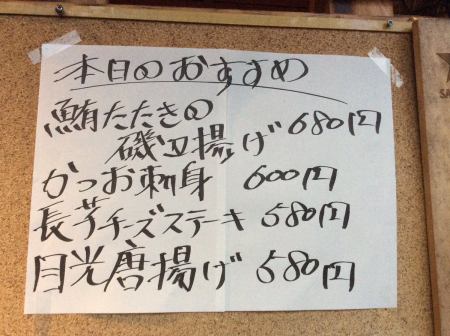 本日のおすすめ
鮪たたきの
磯辺揚げ 680円
かつお刺身 600円
長芋チーズステーキ 580円
目光唐揚げ 580円